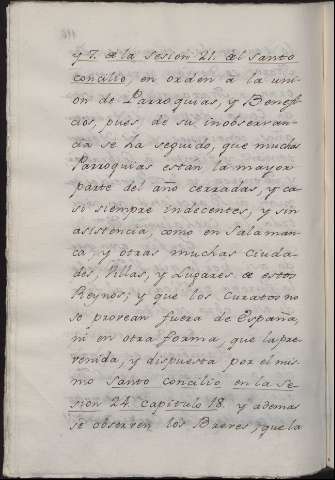 y 7. de la sesion 21. del Santo
concilio, en orden à la uni-
on de Parroquias, y Benefi-
cios, pues, de su inobservan-
cia se ha seguido, que muchas
Parroquias estan la mayor
parte del año cerradas, y ca-
si siempre indecentes, y sin
asistencia, como en Salaman-
ca, y otras muchas Ciuda-
des, Villas, y Lugares de estos
Reynos; y que los curatos no
se provean fuera de España,
ni en otra forma, que la pre-
venida, y dispuesta por el mis-
mo Santo Concilio, en la Se-
sion 24. capitulo 18. y ademas
se observen los Breves, que la